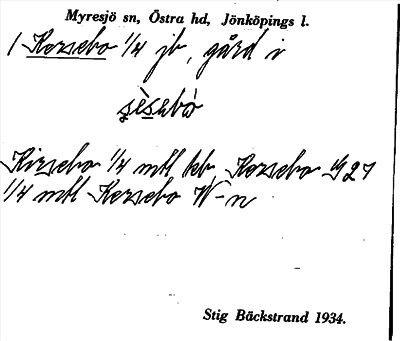 Myresjö sn, Östra hd, Jönköpings l.
1 Kersebo 1/4 jb, gård i
Kirsebo 1/4 mtl kb Kersebo G 27
1/4 mtl Kersebo W-n
Stig Bäckstrand 1934.